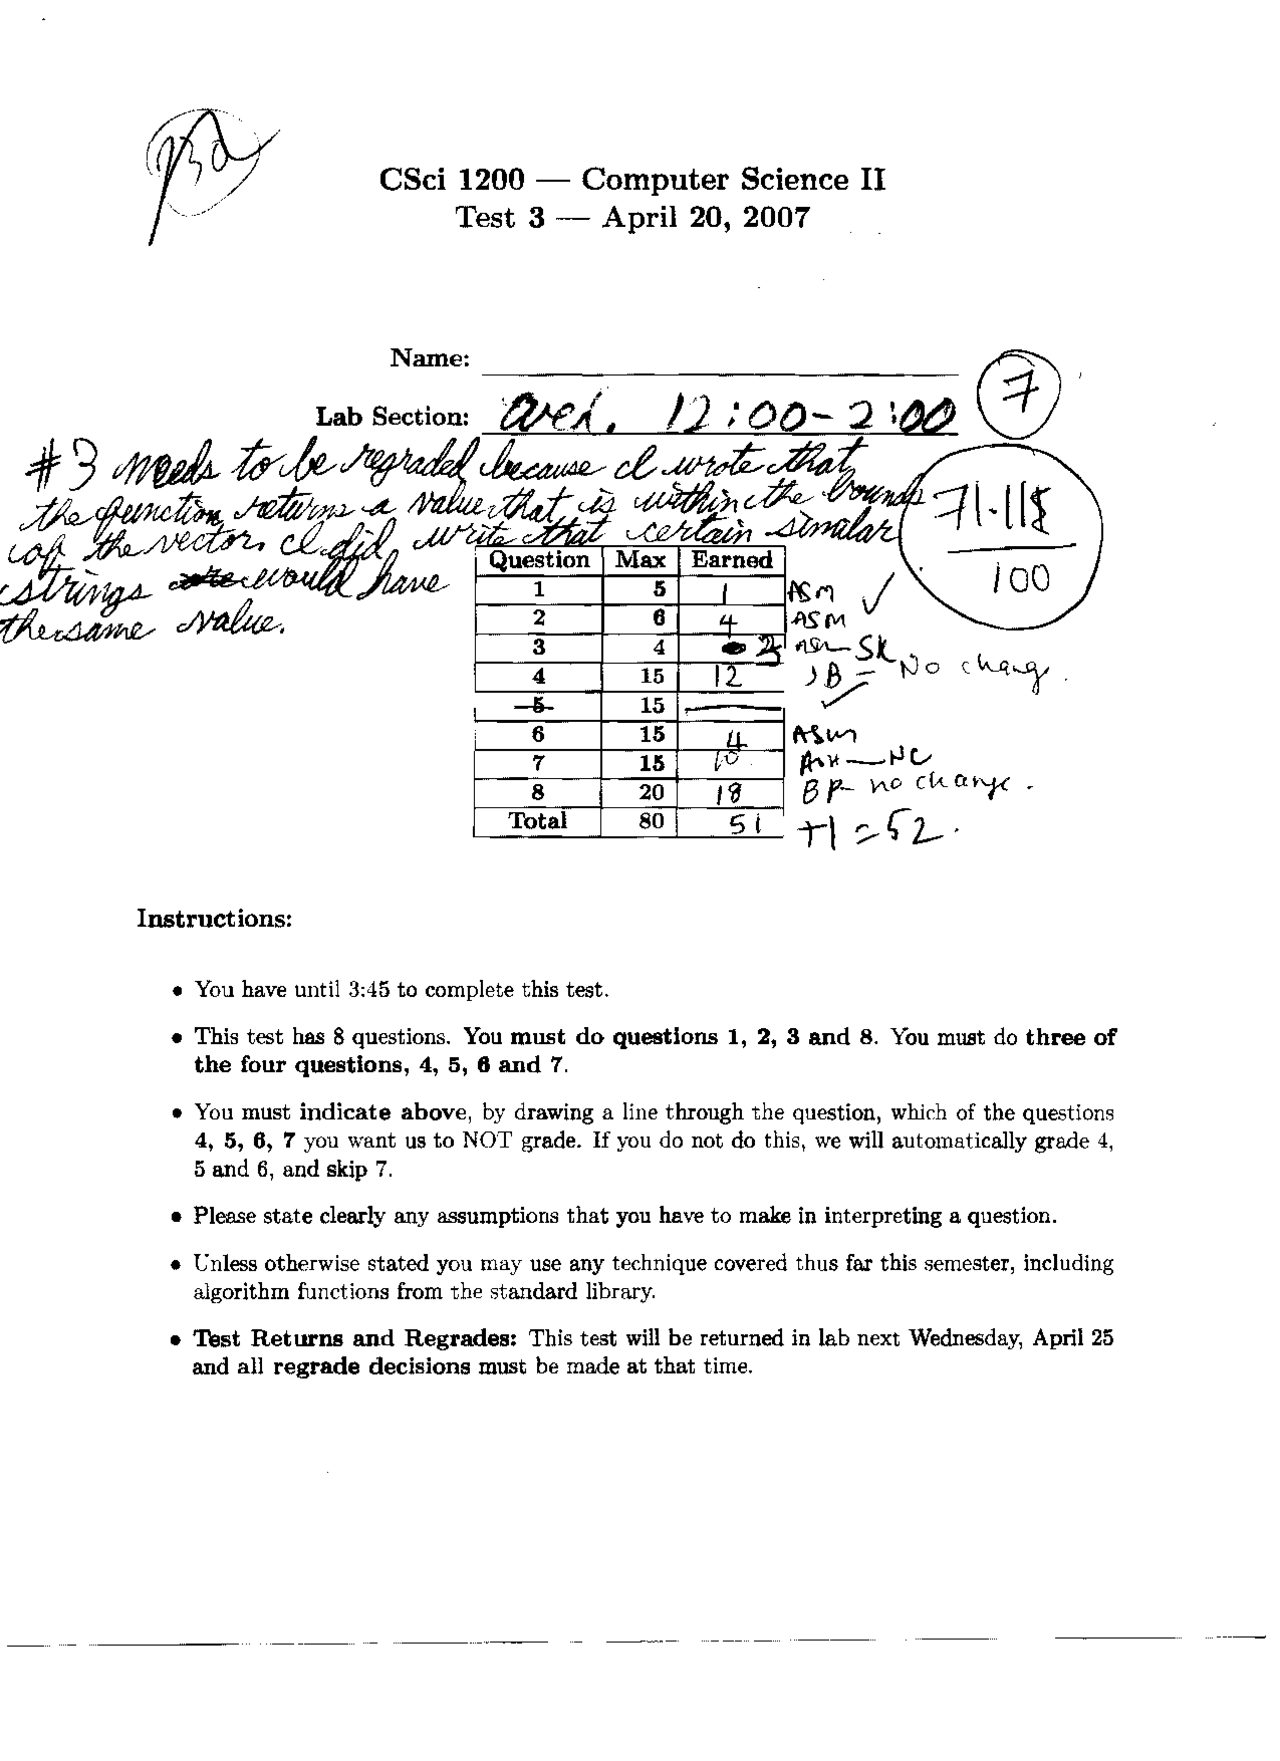 CSci 1200 — Computer Science II
Test 3 — April 20, 2007
Name:
7
Lab Section: Wed. 12:00-2:00
#3 needs to be regraded because I wrote that
the function returns a value that is within the bounds
of the vector. I did write that certain simalar
strings would have
the same value.
71.118
100
Question Max Earned
1 5 1 ASM ✓
2 6 4 ASM
3 4 SK
4 15 12 JB = No chang.
5 15 —
6 15 4 ASM
7 15 10 NC
8 20 18 BP- no change.
Total 80 51 +1 = 52.
Instructions:
• You have until 3:45 to complete this test.
• This test has 8 questions. You must do questions 1, 2, 3 and 8. You must do three of
the four questions, 4, 5, 6 and 7.
• You must indicate above, by drawing a line through the question, which of the questions
4, 5, 6, 7 you want us to NOT grade. If you do not do this, we will automatically grade 4,
5 and 6, and skip 7.
• Please state clearly any assumptions that you have to make in interpreting a question.
• Unless otherwise stated you may use any technique covered thus far this semester, including
algorithm functions from the standard library.
• Test Returns and Regrades: This test will be returned in lab next Wednesday, April 25
and all regrade decisions must be made at that time.